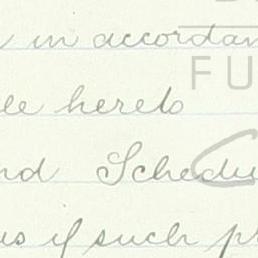 in accordan
FU
hereto
nd Schedu
if such pr